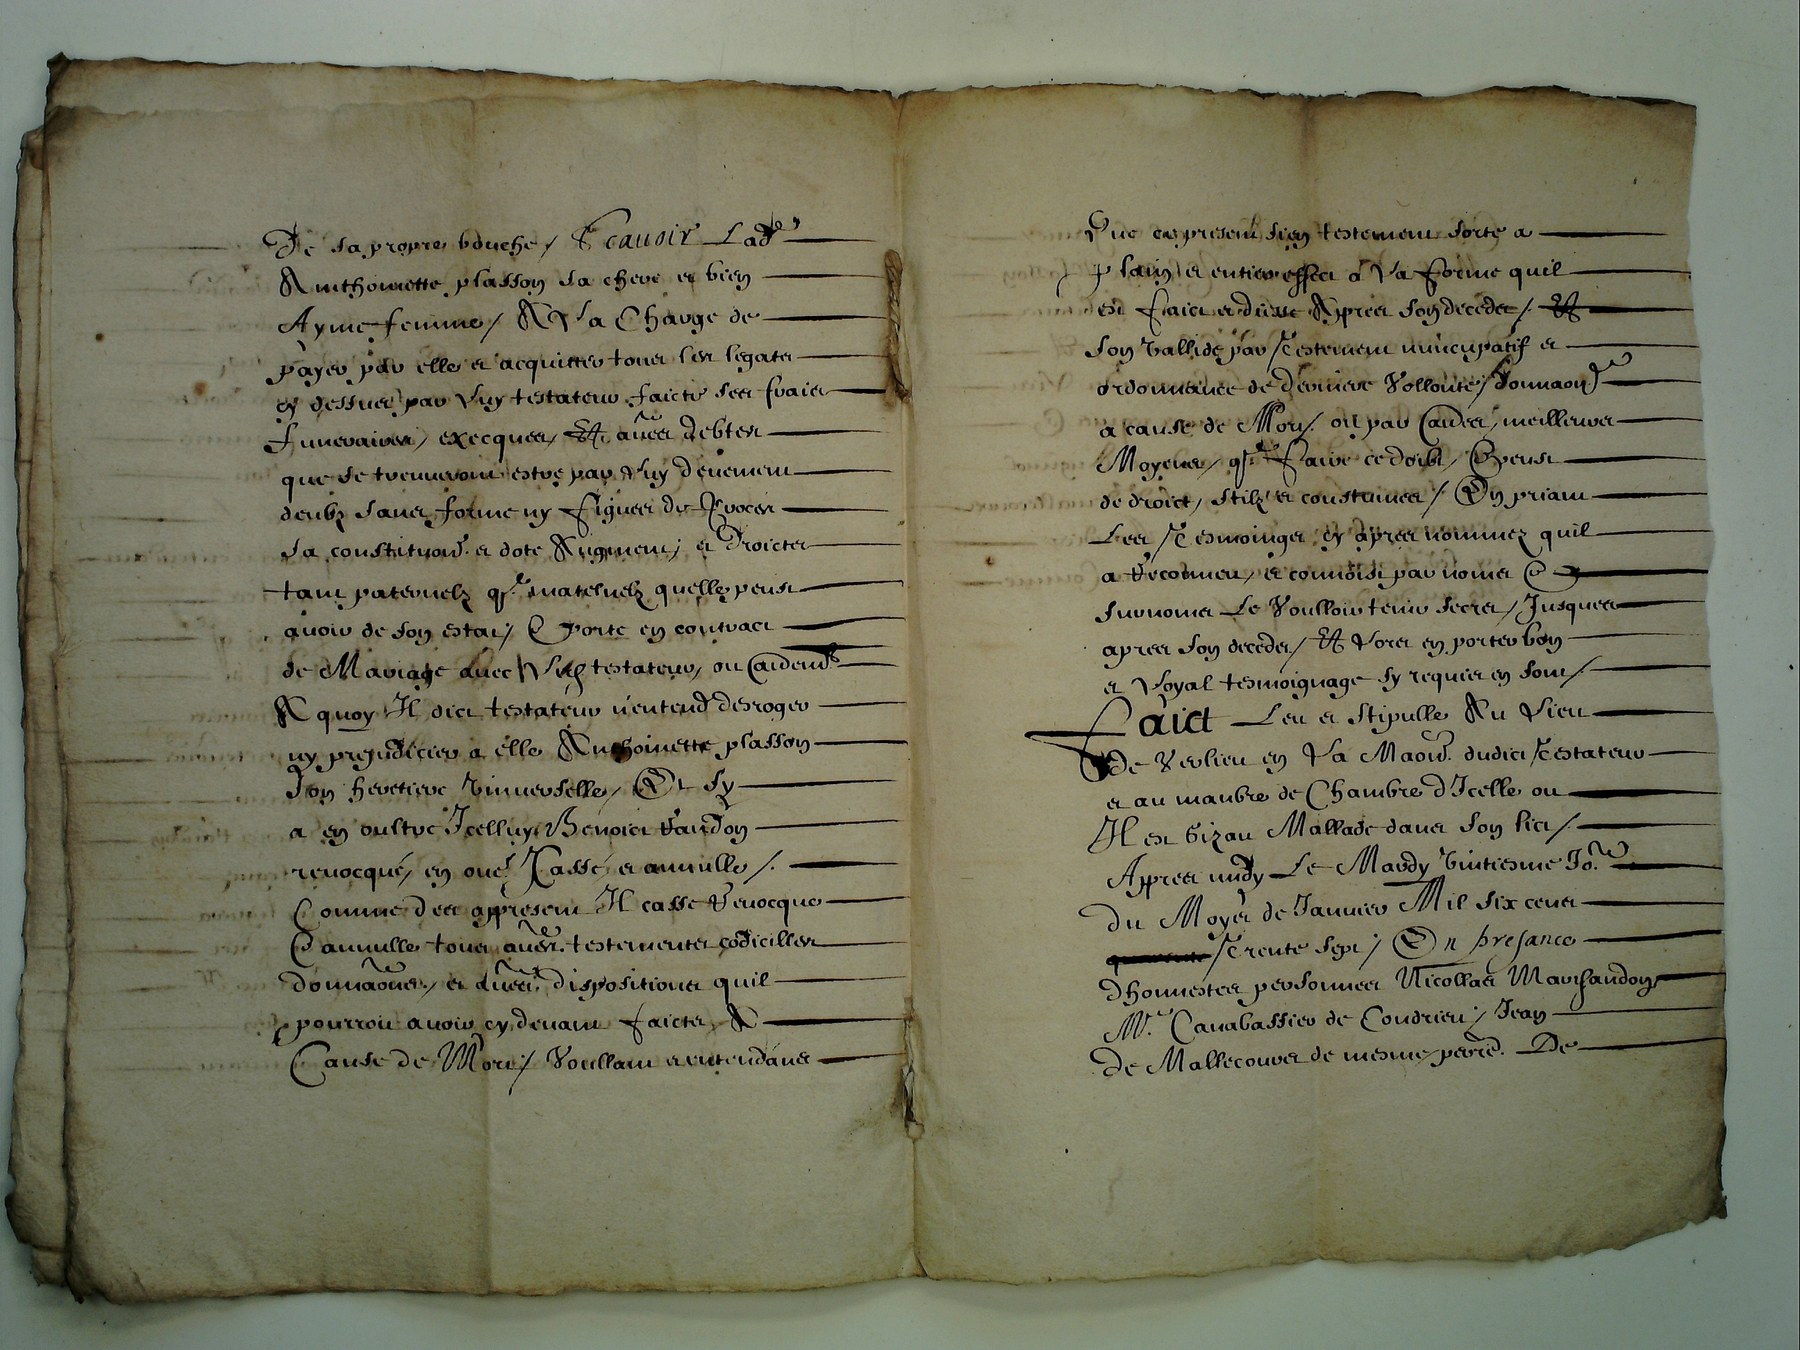 De sa propre bouche / Scauoir Lad^e
Anthoinette plasson sa chere et bien
Aymé femme / A La Charge de
payer par elle et acquitter tous les legats
cy dessus par luy testateur faicts ses frais
funeraires, execques, et au^es debtes
que se treuueront estre par luy deuement
deubz sans forme ny figure de proces
la constitu^on et dote augment, et droicts
tant paternelz q^e maternelz quelle peust
auoir de son estat / porte en contract
de Mariage auec luy testateur, ou
A quoy Il dict testateur n'entend desroger
ny preiudicier a elle Anthoinette plasson
Son heretiere vniuerselle, Et sy
a en oultre Icelluy Benoict
reuocqué, en oue^e Cassé et annulle /.
Comme des appresent Il casse reuocque
annulle tous au^es testements codicilles
donna^ons, et au^es dispositions quil
pourroit auoir cy deuant faicts A
Cause de Mort / Voullant et entendans
Que ce present sien testement sorte a
plain et entier effect a La forme quil
est faict et dicte Apres son deces / Et
Soy vallide par Testement nuncupatif et
ordonnance de derniere Vollonté / donnaon
a cause de Mort / ou par au^es meilleures
Moyens, q^e faire ce doibt, Et peust
de droict, stilz et constumes / En priant
Les Tesmoings cy apres nommez quil
a recouneu, et connoist par noms Et
surnoms Le Voulloir tenir secret / Jusques
apres son deces / Et Lors en porter bon
et Loyal tesmoignage sy requis en sont /
Faict Leu et stipulle Au Lieu
De Verlieu en La Maon dudict Testateur
et au manbre de Chambre d'Icelle ou
Il est Gizan Mallade dans son lict /
Appres midy Le Mardy Vintiesme Jo^r
du Moys de Januier Mil six cens
Trente sept / En presance
dhonnestes personnes Nicollas Marchandon
M^e Canabassier de Condrieu / Jean
de Mallecours de mesme perr^e. De